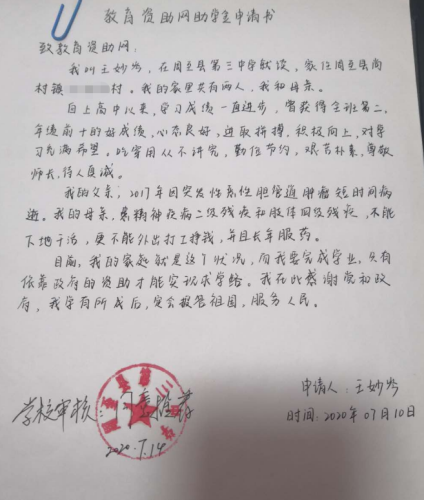 教育资助网助学金申请书
致教育资助网：
我叫王妙 ，在周至县第三中学就读，家住周至县尚
村镇 村。我的家里共有两人，我和母亲。
自上高中以来，学习成绩一直进步，曾获得全班第二，
年级前十的好成绩，心态良好，进取拼搏，积极向上，对学
习充满希望。吃穿用从不讲究，勤俭节约，艰苦朴素，尊敬
师长，待人真诚。
我的父亲，2017年因突发性高位胆管道肿瘤短时间病
逝。我的母亲，患精神疾病二级残疾和肢体四级残疾，不能
下地干活，更不能外出打工挣钱，并且长年服药。
目前，我的家庭就是这个状况，而我要完成学业，只有
依靠政府的资助才能实现求学路。我在此感谢党和政
府，我学有所成后，定会报答祖国，服务人民。
申请人：王妙
学校审核：
时间：2020年07月10日
2020.7.14